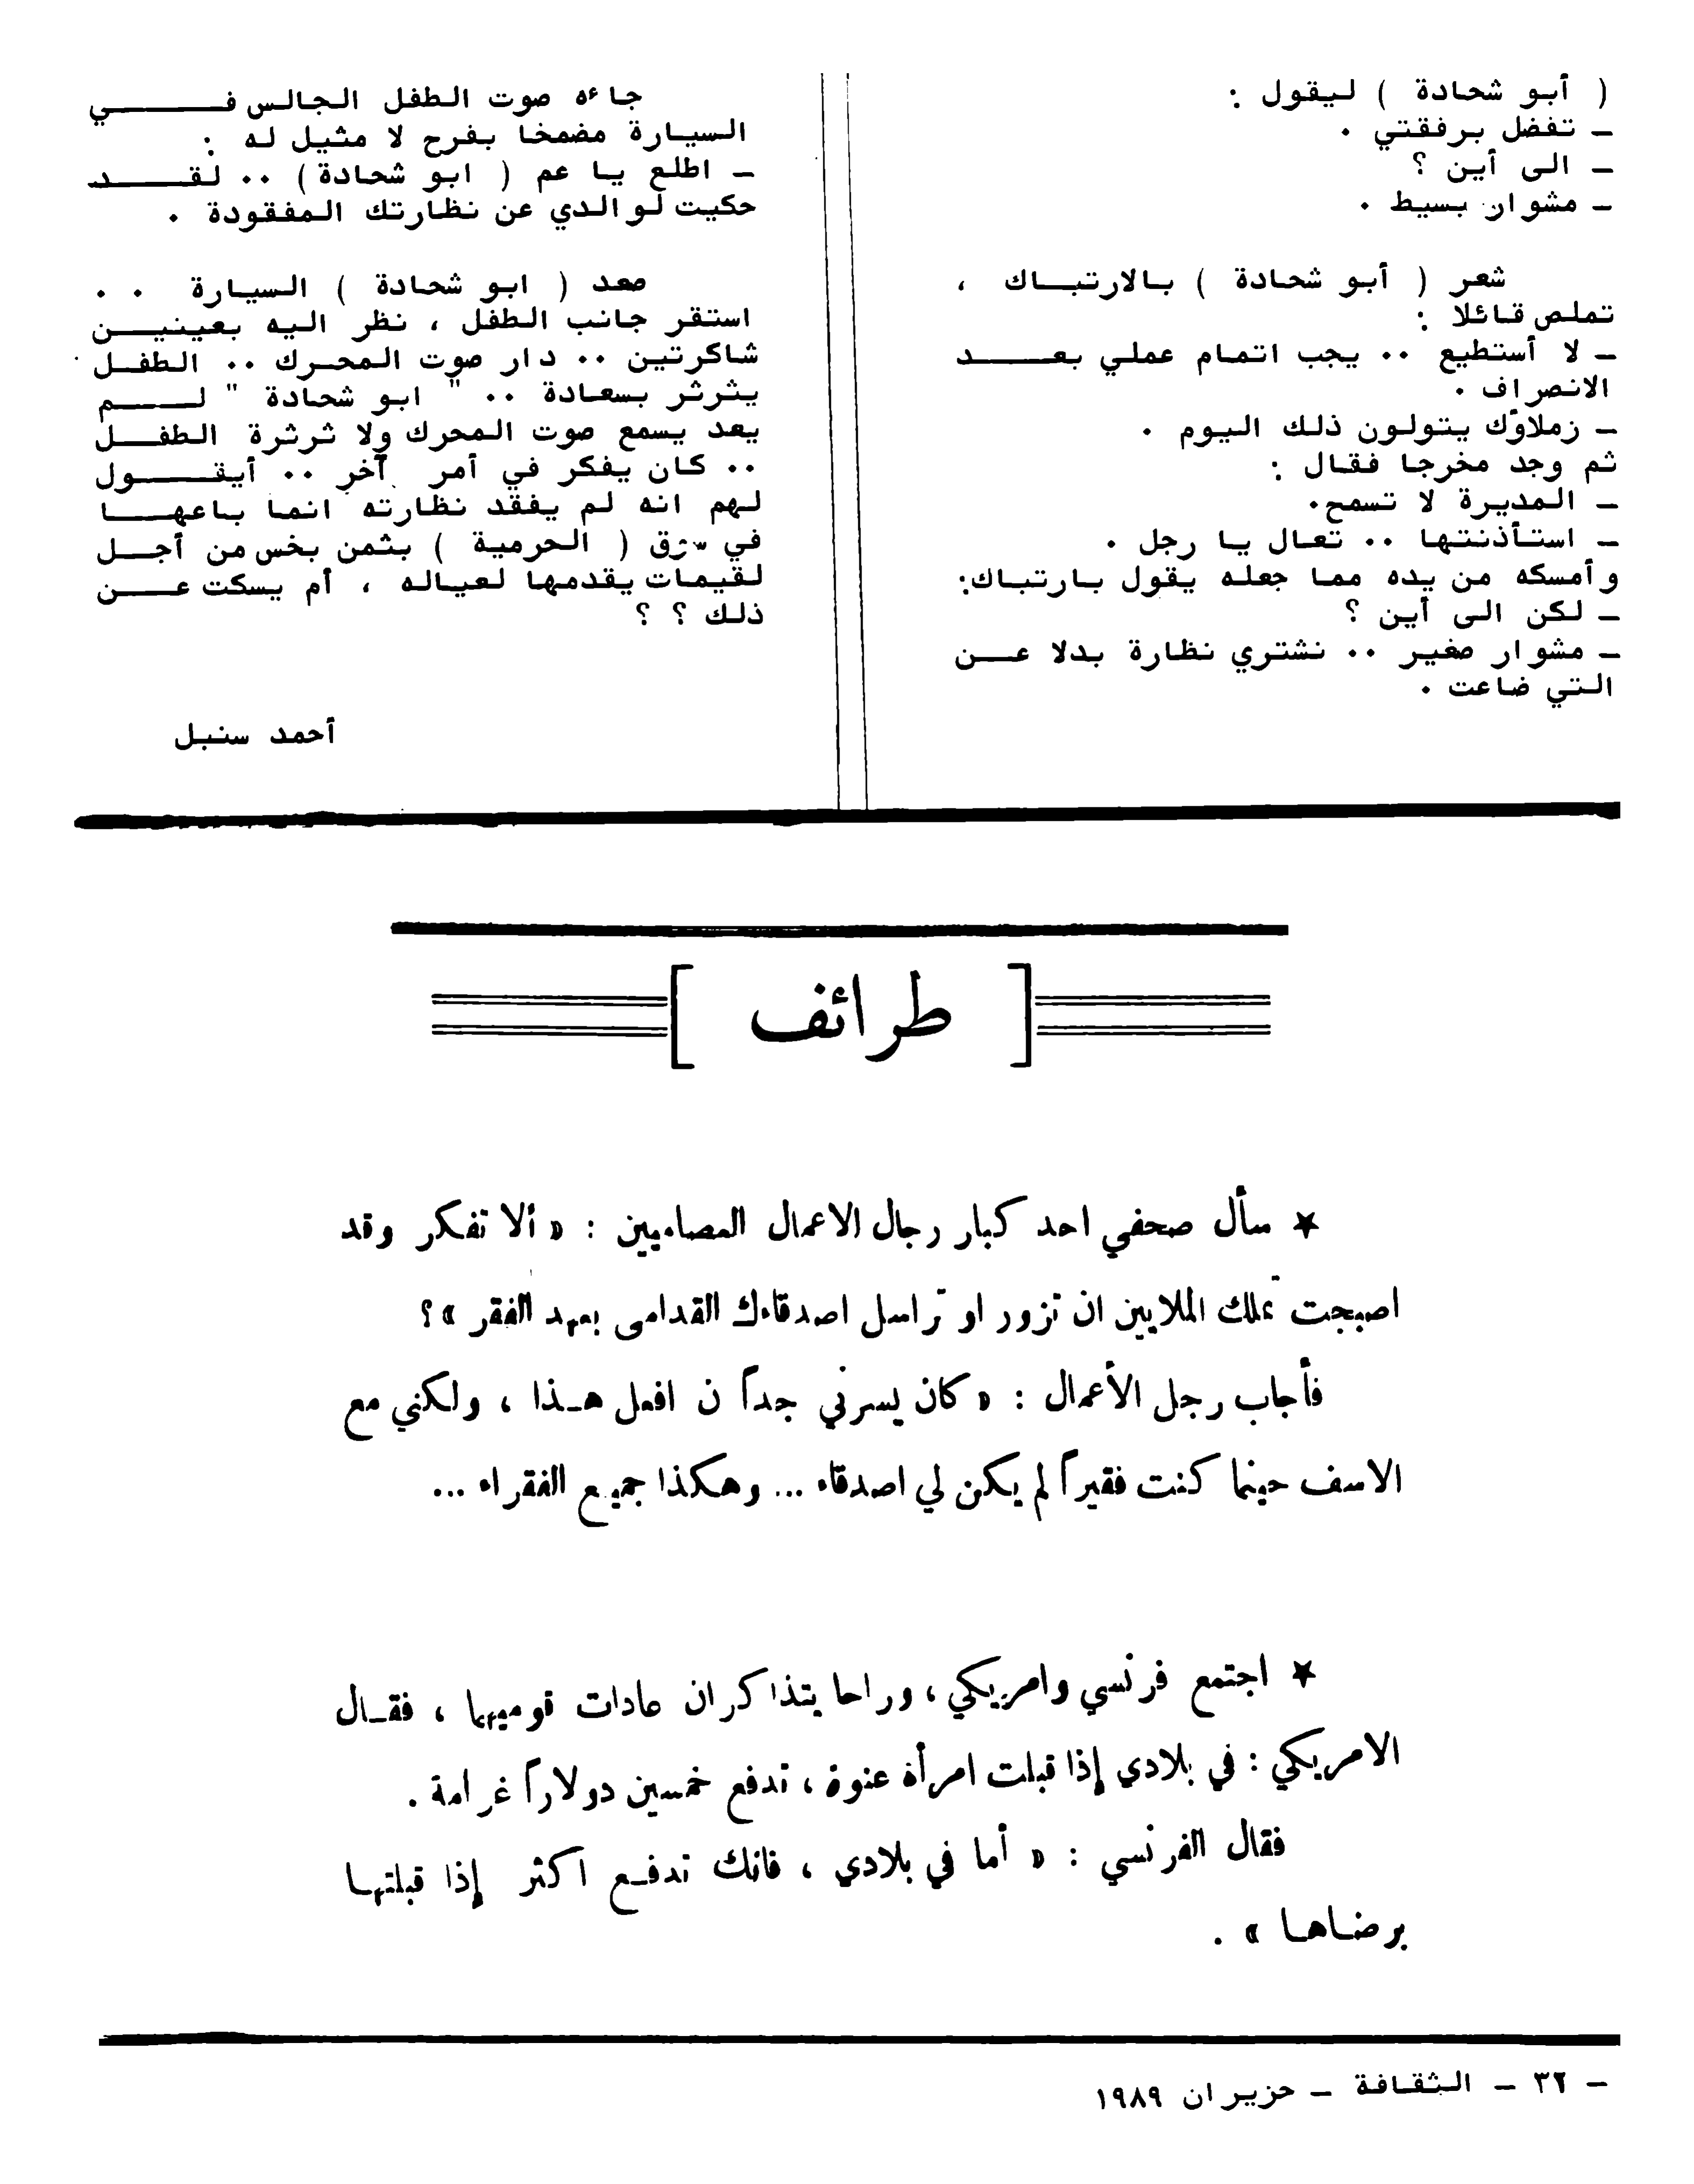 ( أبو شحادة ) ليقول :
– تفضل برفقتي .
– الى أين ؟
– مشوار بسيط .
شعر ( أبو شحادة ) بالارتباك ،
تملص قائلا :
– لا أستطيع .. يجب اتمام عملي بعد
الانصراف .
– زملاؤك يتولون ذلك اليوم .
ثم وجد مخرجا فقال :
– المديرة لا تسمح.
– استأذنتها .. تعال يا رجل .
وأمسكه من يده مما جعله يقول بارتباك:
– لكن الى أين ؟
– مشوار صغير .. نشتري نظارة بدلا عن
التي ضاعت .
جاءه صوت الطفل الجالس في
السيارة مضمخا بفرح لا مثيل له :
– اطلع يا عم ( ابو شحادة ) .. لقد
حكيت لوالدي عن نظارتك المفقودة .
صعد ( ابو شحادة ) السيارة ..
استقر جانب الطفل ، نظر اليه بعينين
شاكرتين .. دار صوت المحرك .. الطفل
يثرثر بسعادة .. " ابو شحادة " لم
يعد يسمع صوت المحرك ولا ثرثرة الطفل
.. كان يفكر في أمر آخر .. أيقول
لهم انه لم يفقد نظارته انما باعها
في سوق ( الحرمية ) بثمن بخس من أجل
لقيمات يقدمها لعياله ، أم يسكت عن
ذلك ؟ ؟
أحمد سنبل
[ طرائف ]
★ سأل صحفي احد كبار رجال الاعمال العصاميين : « ألا تفكر وقد
اصبحت تملك الملايين ان تزور او تراسل اصدقاءك القدامى بعهد الفقر » ؟
فأجاب رجل الأعمال : « كان يسرني جداً ن افعل هـذا ، ولكني مع
الاسف حينما كنت فقيراً لم يكن لي اصدقاء ... وهكذا جميع الفقراء ...
★ اجتمع فرنسي وامريكي ، وراحا يتذاكران عادات قوميهما ، فقـال
الامريكي : في بلادي إذا قبلت امرأة عنوة ، تدفع خمسين دولاراً غرامة .
فقال الفرنسي : « أما في بلادي ، فانك تدفـع اكثر إذا قبلتهـا
برضـاهـا » .
– ٣٢ – الثقافة – حزيران ١٩٨٩